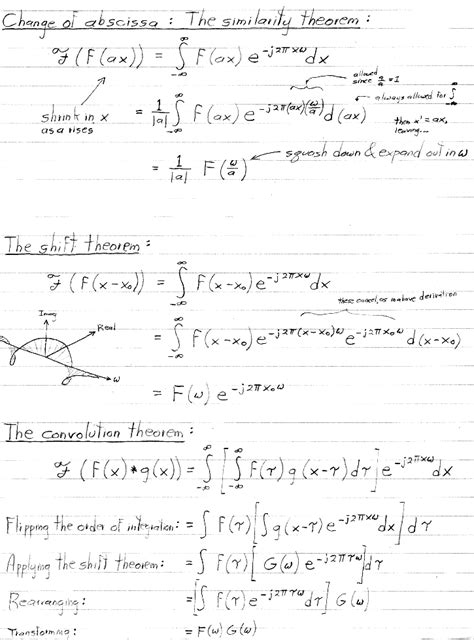 Change of abscissa : The similarity theorem :
ℱ (F(ax)) = ∫_{-∞}^{∞} F(ax) e^{-j2πxω} dx
allowed
since a/a = 1
always allowed for ∫_{-∞}^{∞}
shrink in x
as a rises
= 1/|a| ∫_{-∞}^{∞} F(ax) e^{-j2π(ax)(ω/a)} d(ax)
then x' = ax,
leaving...
= 1/|a| F(ω/a)
squash down & expand out in ω
The shift theorem :
ℱ (F(x-x₀)) = ∫_{-∞}^{∞} F(x-x₀) e^{-j2πxω} dx
these cancel, as in above derivation
Imag
Real
ω
= ∫_{-∞}^{∞} F(x-x₀) e^{-j2π(x-x₀)ω} e^{-j2πx₀ω} d(x-x₀)
= F(ω) e^{-j2πx₀ω}
The convolution theorem :
ℱ (F(x)*g(x)) = ∫_{-∞}^{∞} [∫_{-∞}^{∞} F(τ) g(x-τ) dτ] e^{-j2πxω} dx
Flipping the order of integration: = ∫ F(τ) [∫ g(x-τ) e^{-j2πxω} dx] dτ
Applying the shift theorem: = ∫ F(τ) [G(ω) e^{-j2πτω}] dτ
Rearranging: = [∫ F(τ) e^{-j2πτω} dτ] G(ω)
Transforming: = F(ω) G(ω)